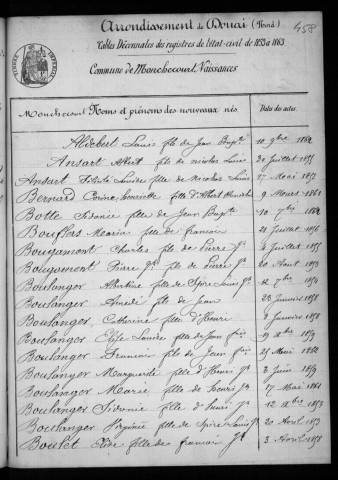 458
Arrondissement de Douai (Nord)
Tables Décennales des registres de l'état-civil de 1853 à 1863
Commune de Monchecourt, Naissances
Monchecourt Noms et prénoms des nouveaux nés Date des actes
Aldebert Louis fils de Jean Bapte 10 9bre 1862
Ansart Albert fils de nicolas Louis 30 Juillet 1855
Ansart Louise fille de Nicolas Louis 17 Mai 1853
Bernard Corine fille d'Albert 9 Mars 1861
Botte Sidonie fille de Jean Bapte 10 1862
Bouflers Maria fille de francois 21 Juillet 1856
Bougamont Charles fils de Pierre Jh 4 Juillet 1855
Bougamont Pierre Jh fils de Pierre Jh 20 Aout 1853
Boulanger Albertine fille de Spire Louis Jh 12 7bre 1854
Boulanger Amedé fils de Jean 28 Janvier 1858
Boulanger Catherine fille d'Henri 8 Janvier 1858
Boulanger Elise Laudie fille de Jean 19 1859
Boulanger francois fils de Jean 25 Mai 1862
Boulanger Marguerite fille d'Henri Jh 2 Juin 1859
Boulanger Marie fille de henri Jh 17 Mai 1861
Boulanger Sidonie fille d'henri Jh 12 Xbre 1853
Boulanger Virginie fille de Spire Louis Jh 20 Avril 1853
Boulet fille de francois Jh 3 Avril 1858